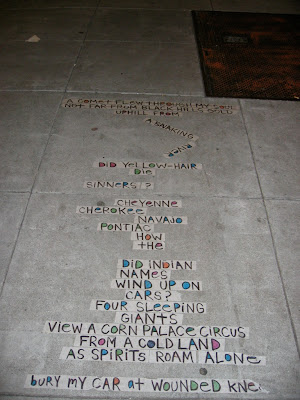 A COMET FLEW THROUGH MY SOUL
NOT FAR FROM BLACK HILLS GOLD
UPHILL FROM
A
RIVER
DID YELLOW-HAIR
DIE
SINNERS?
CHEYENNE
CHEROKEE
NAVAJO
PONTIAC
HOW
THE
DID INDIAN
NAMES
WIND UP ON
CARS?
FOUR SLEEPING
GIANTS
VIEW A CORN PALACE CIRCUS
FROM A COLD LAND
AS SPIRITS ROAM ALONE
bURY MY CAR at WOUNDED KNEE